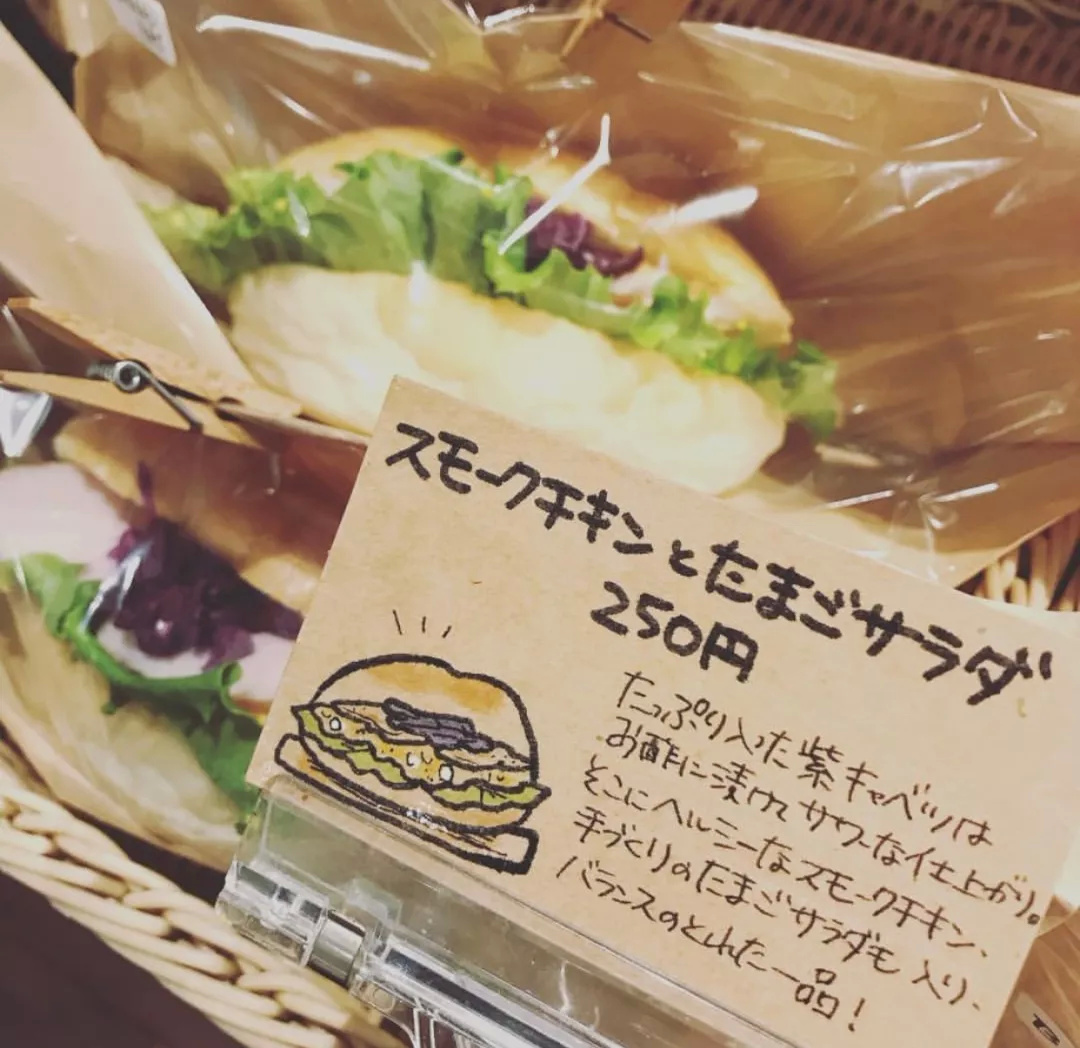 スモークチキンとたまごサラダ
250円
たっぷり入った紫キャベツは
お酢に漬けてサワーな仕上がり。
そこにヘルシーなスモークチキン、
手づくりのたまごサラダも入り、
バランスのとれた一品!